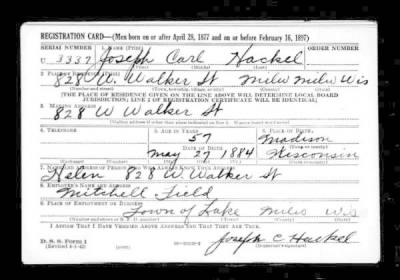 REGISTRATION CARD—(Men born on or after April 28, 1877 and on or before February 16, 1897)
SERIAL NUMBER 1. NAME (Print) ORDER NUMBER
U 3337 Joseph Carl Hackel
(First) (Middle) (Last)
2. PLACE OF RESIDENCE (Print)
828 W. Walker St Milw Milw Wis
(Number and street) (Town, township, village, or city) (County) (State)
[THE PLACE OF RESIDENCE GIVEN ON THE LINE ABOVE WILL DETERMINE LOCAL BOARD
JURISDICTION; LINE 2 OF REGISTRATION CERTIFICATE WILL BE IDENTICAL]
3. MAILING ADDRESS
828 W Walker St
[Mailing address if other than place indicated on line 2. If same insert word same]
4. TELEPHONE 5. AGE IN YEARS 6. PLACE OF BIRTH
57 Madison
DATE OF BIRTH (Town or county)
May 27 1884 Wisconsin
(Exchange) (Number) (Mo.) (Day) (Yr.) (State or country)
7. NAME AND ADDRESS OF PERSON WHO WILL ALWAYS KNOW YOUR ADDRESS
Helen 828 W Walker St
8. EMPLOYER'S NAME AND ADDRESS
Mitchell Field
9. PLACE OF EMPLOYMENT OR BUSINESS
Town of Lake Milw Wis
(Number and street or R. F. D. number) (Town) (County) (State)
I AFFIRM THAT I HAVE VERIFIED ABOVE ANSWERS AND THAT THEY ARE TRUE.
D. S. S. Form 1
(Revised 4-1-42) (over)
Joseph C Hackel
(Registrant's signature)